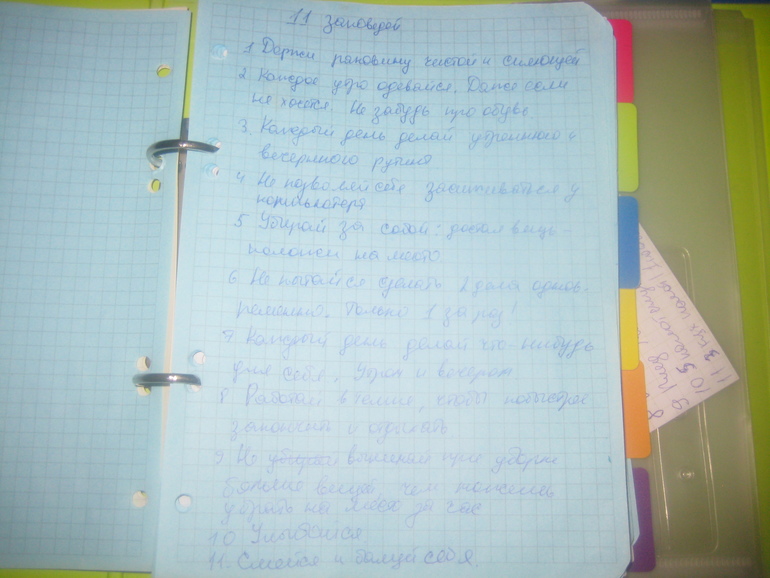 11 заповедей
1 Держи раковину чистой и сияющей
2 Каждое утро одевайся. Даже если
не хочется. Не забудь про обувь
3. Каждый день делай утреннюю и
вечернюю рутина
4. Не позволяй себе засиживаться у
компьютера
5 Убирай за собой: достал вещь -
положи на место.
6 Не пытайся сделать 2 дела однов-
ременно. Только 1 за раз!
7 Каждый день делай что-нибудь
для себя, утром и вечером
8 Работай в темпе, чтобы побыстрее
закончить и отдыхать
9 Не вынимай при уборке
больше вещей чем можешь
убрать на место за час
10 Улыбайся
11. Смейся и балуй себя.